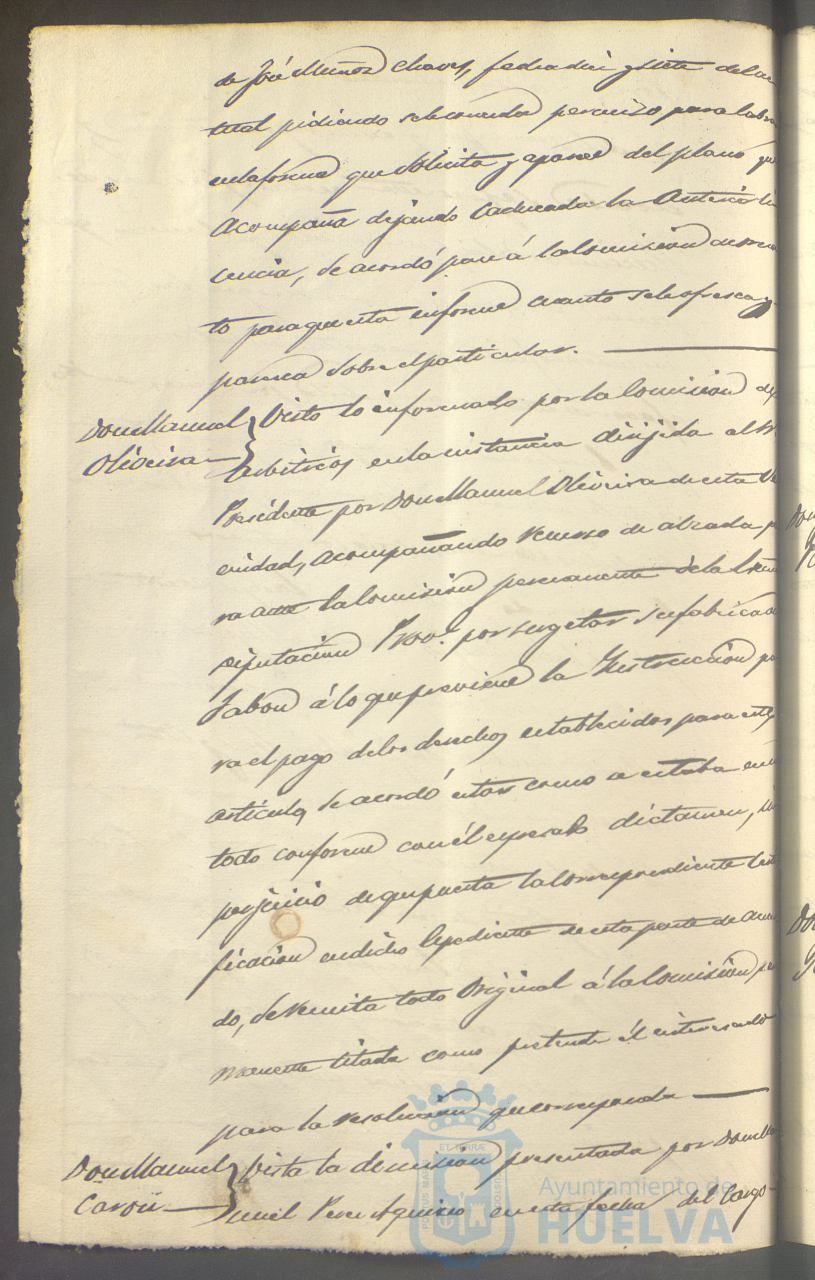 de José Muñoz Chaves, fecha diez y siete del ac
tual pidiendo se le conceda permiso para labra
en la forma que solicita y aparece del plano qu
acompaña dejando caducada la anterior li
cencia, se acordó pase á la Comisión de
to para que esta informe cuanto se le ofrezca y
parezca sobre el particular.
Don Manuel
Oliveira
Visto lo informado por la Comisión de
arbitrios en la instancia dirijida al
Presidente por Don Manuel Oliveira de esta Ve
cindad, acompañando recurso de alzada pa
ra ante la Comisión permanente de la
Diputación Prov.l por sugetar su fabrica de
Jabon á lo que previene la Instrucción pa
ra el pago de los derechos establecidos para este
artículo, se acordó estar como a estaba en un
todo conforme con él espresado dictamen, sin
perjuicio de que puesta la correspondiente certi
ficación en dicho Espediente de esta parte de acuer
do, se remita todo original á la Comisión per
manente citada como pretende él interesado
para la resolución que corresponda
Don Manuel
Vista la dimisión presentada por Don Ma
nuel Perez Aquino en esta fecha del Cargo
PORTUS MARIS ET TERRAE CUSTODIA
Ayuntamiento de
HUELVA